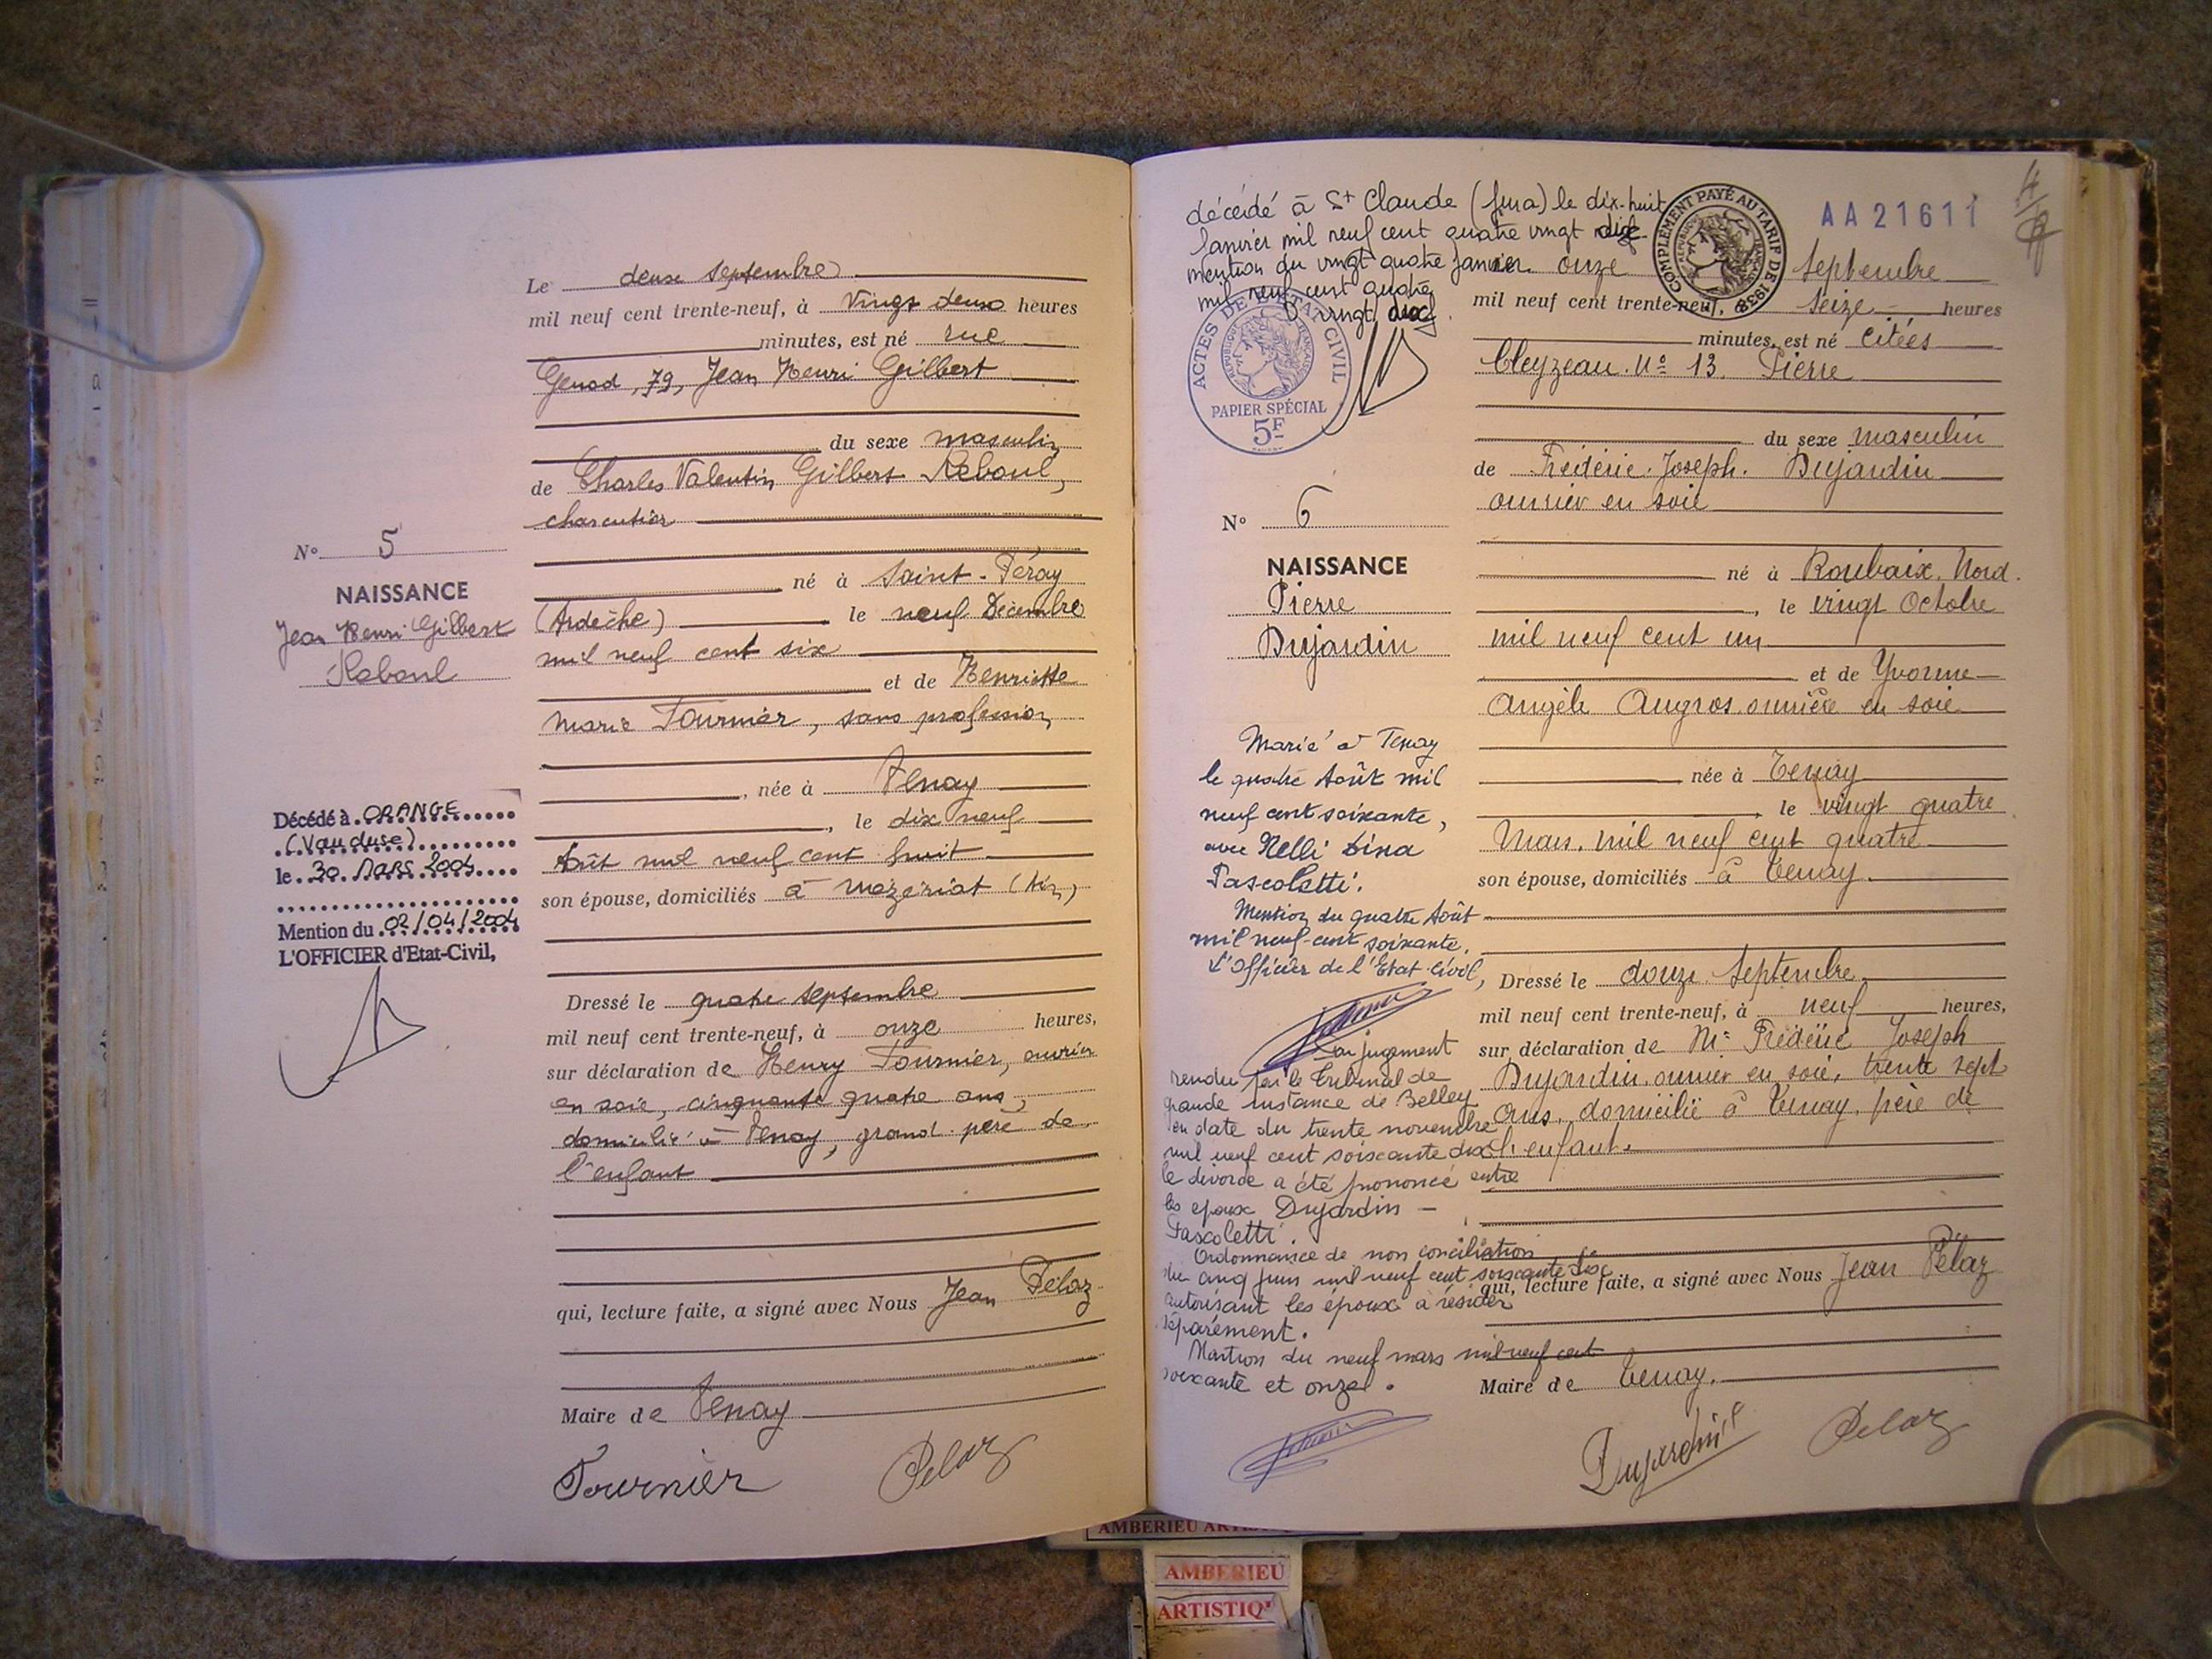 Le deux Septembre
mil neuf cent trente-neuf, à Vingt deux heures
minutes, est né rue
Genod, 79, Jean Henri Gilbert
du sexe masculin
de Charles Valentin Gilbert Reboul,
charcutier
né à Saint-Péray
(Ardèche) le neuf Décembre
mil neuf cent six
et de Henriette
Marie Tournier, sans profession
, née à Tenay
, le dix neuf
Août mil neuf cent huit
son épouse, domiciliés à Mézériat (Ain)
Dressé le quatre septembre
mil neuf cent trente-neuf, à onze heures,
sur déclaration de Henry Tournier, ouvrier
en soie, cinquante quatre ans,
domicilié à Tenay, grand-père de
l'enfant
qui, lecture faite, a signé avec Nous Jean Pélaz
Maire de Tenay
Tournier Pelaz
N° 5
NAISSANCE
Jean Henri Gilbert
Reboul
Décédé à ORANGE
(Vaucluse)
le 30 MARS 2004
Mention du 02/04/2004
L'OFFICIER d'Etat-Civil,
décédé à St Claude (Jura) le dix-huit
Janvier mil neuf cent quatre vingt dix
mention du vingt quatre janvier
mil neuf cent quatre
vingt dix
ACTES DE L'ETAT CIVIL
PAPIER SPÉCIAL
5F
COMPLÉMENT PAYÉ AU TARIF DE 1938
AA21611
onze Septembre
mil neuf cent trente-neuf, à seize heures
minutes, est né citées
Cleyzeau. N° 13. Pierre
du sexe masculin
de Frédéric. Joseph. Dujardin
ouvrier en soie
né à Roubaix. Nord.
, le vingt Octobre
mil neuf cent un
et de Yvonne
Angèle Augros ouvrière en soie
née à Tenay
, le vingt quatre
Mars. mil neuf cent quatre
son épouse, domiciliés à Tenay.
Dressé le douze Septembre
mil neuf cent trente-neuf, à neuf heures,
sur déclaration de Mr Frédéric Joseph
Dujardin. ouvrier en soie, trente sept
ans. domicilié à Tenay. père de
l'enfant.
qui, lecture faite, a signé avec Nous Jean Pélaz
Maire de Tenay.
Dujardin F Pelaz
N° 6
NAISSANCE
Pierre
Dujardin
Marié à Tenay
le quatre Août mil
neuf cent soixante,
avec Nelli Lina
Pascoletti.
Mention du quatre Août
mil neuf-cent soixante.
L'Officier de l'Etat-Civil,
Par jugement
rendu par le Tribunal de
grande instance de Belley
en date du trente novembre
mil neuf cent soixante dix
le divorce a été prononcé entre
les epoux Dujardin -
Pascoletti.
Ordonnance de non conciliation
du cinq juin mil neuf cent soixante dix
autorisant les époux à résider
séparément.
Mention du neuf mars mil neuf cent
soixante et onze.
AMBERIEU
AMBERIEU
ARTISTIQ